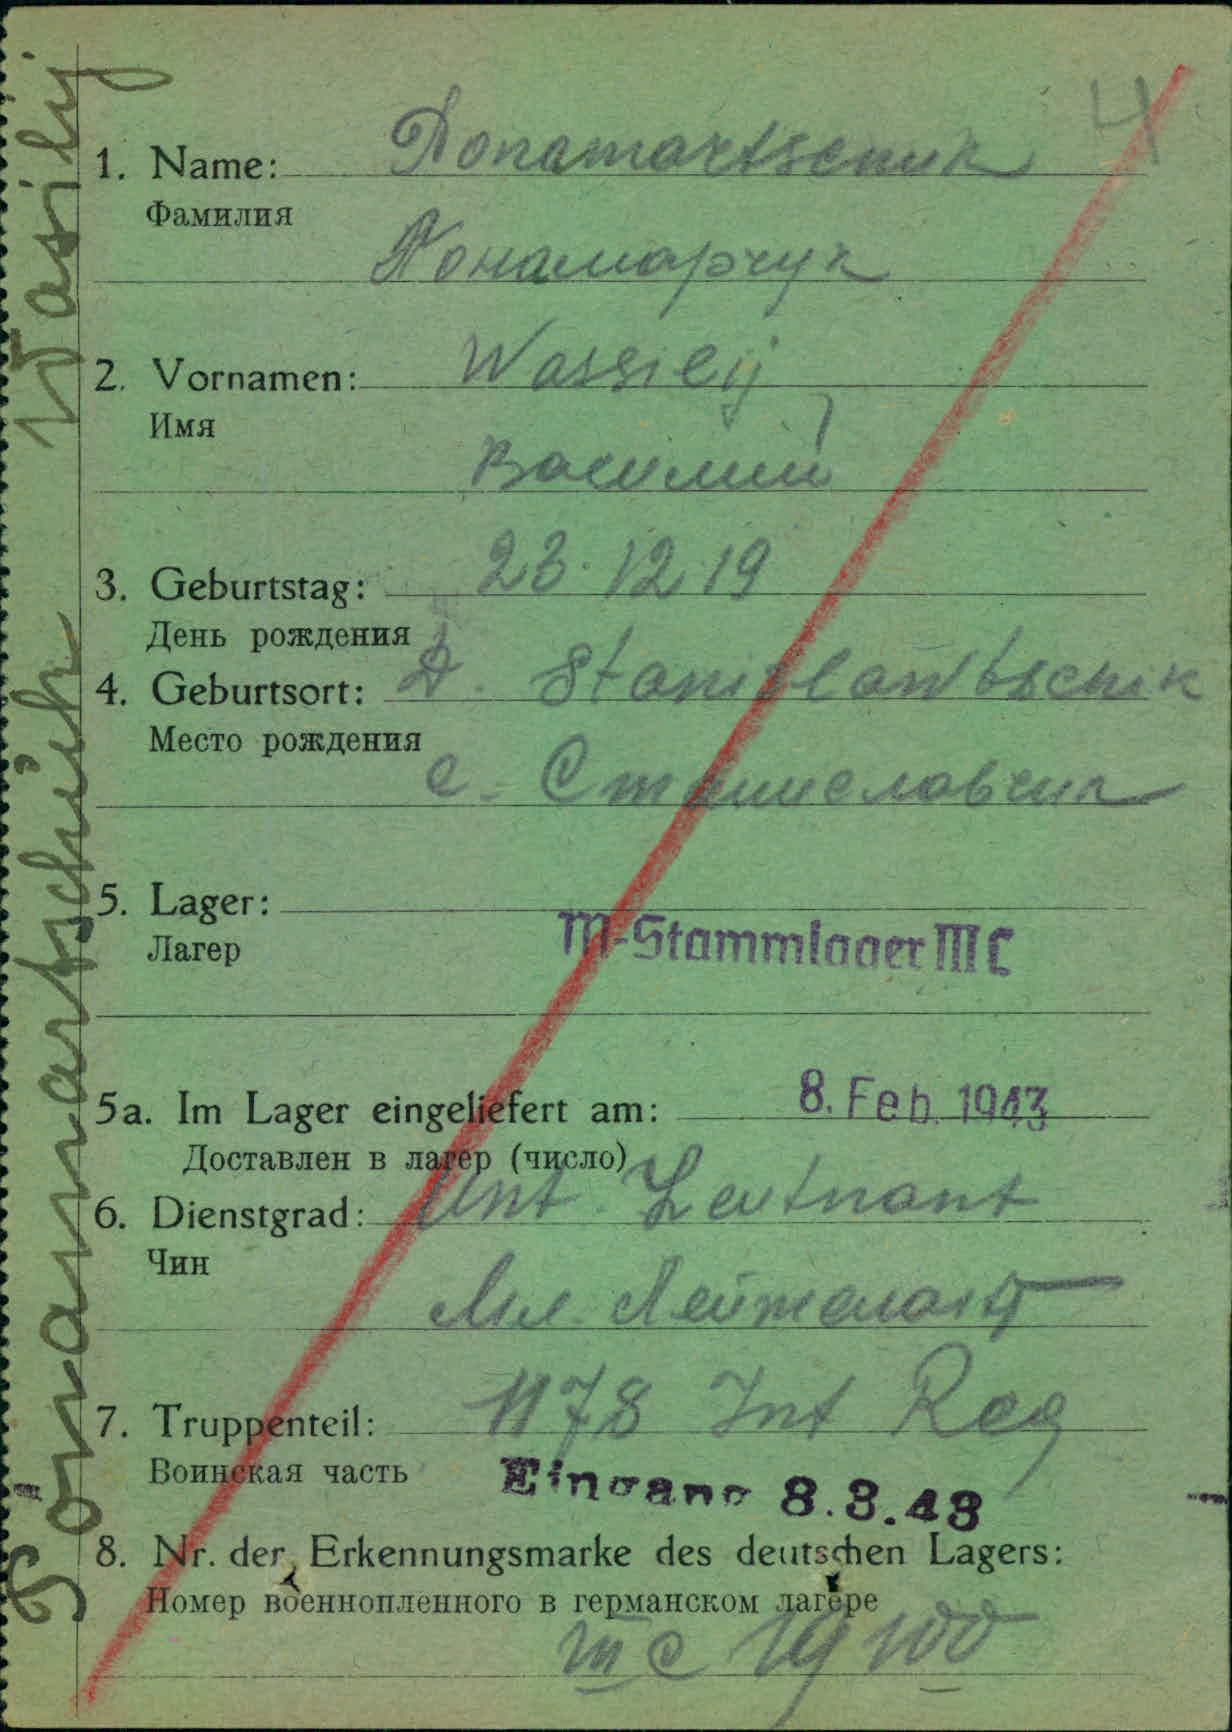 Ponamartschuk Wasilij
4
1. Name: Ponamartschuk
Фамилия
Понамарчук
2. Vornamen: Wassilij
Имя
Василий
3. Geburtstag: 23.12.19
День рождения
4. Geburtsort: D. Stanislawtschik
Место рождения
с. Станиславчик
5. Lager:
Лагер
M-Stammlager III C
5a. Im Lager eingeliefert am: 8. Feb. 1943
Доставлен в лагер (число)
6. Dienstgrad: Unt. Leutnant
Чин
Мл. Лейтенант
7. Truppenteil: 1178 Inf Reg
Воинская часть
Eingang 8.3.43
8. Nr. der Erkennungsmarke des deutschen Lagers:
Номер военнопленного в германском лагере
III C 19100